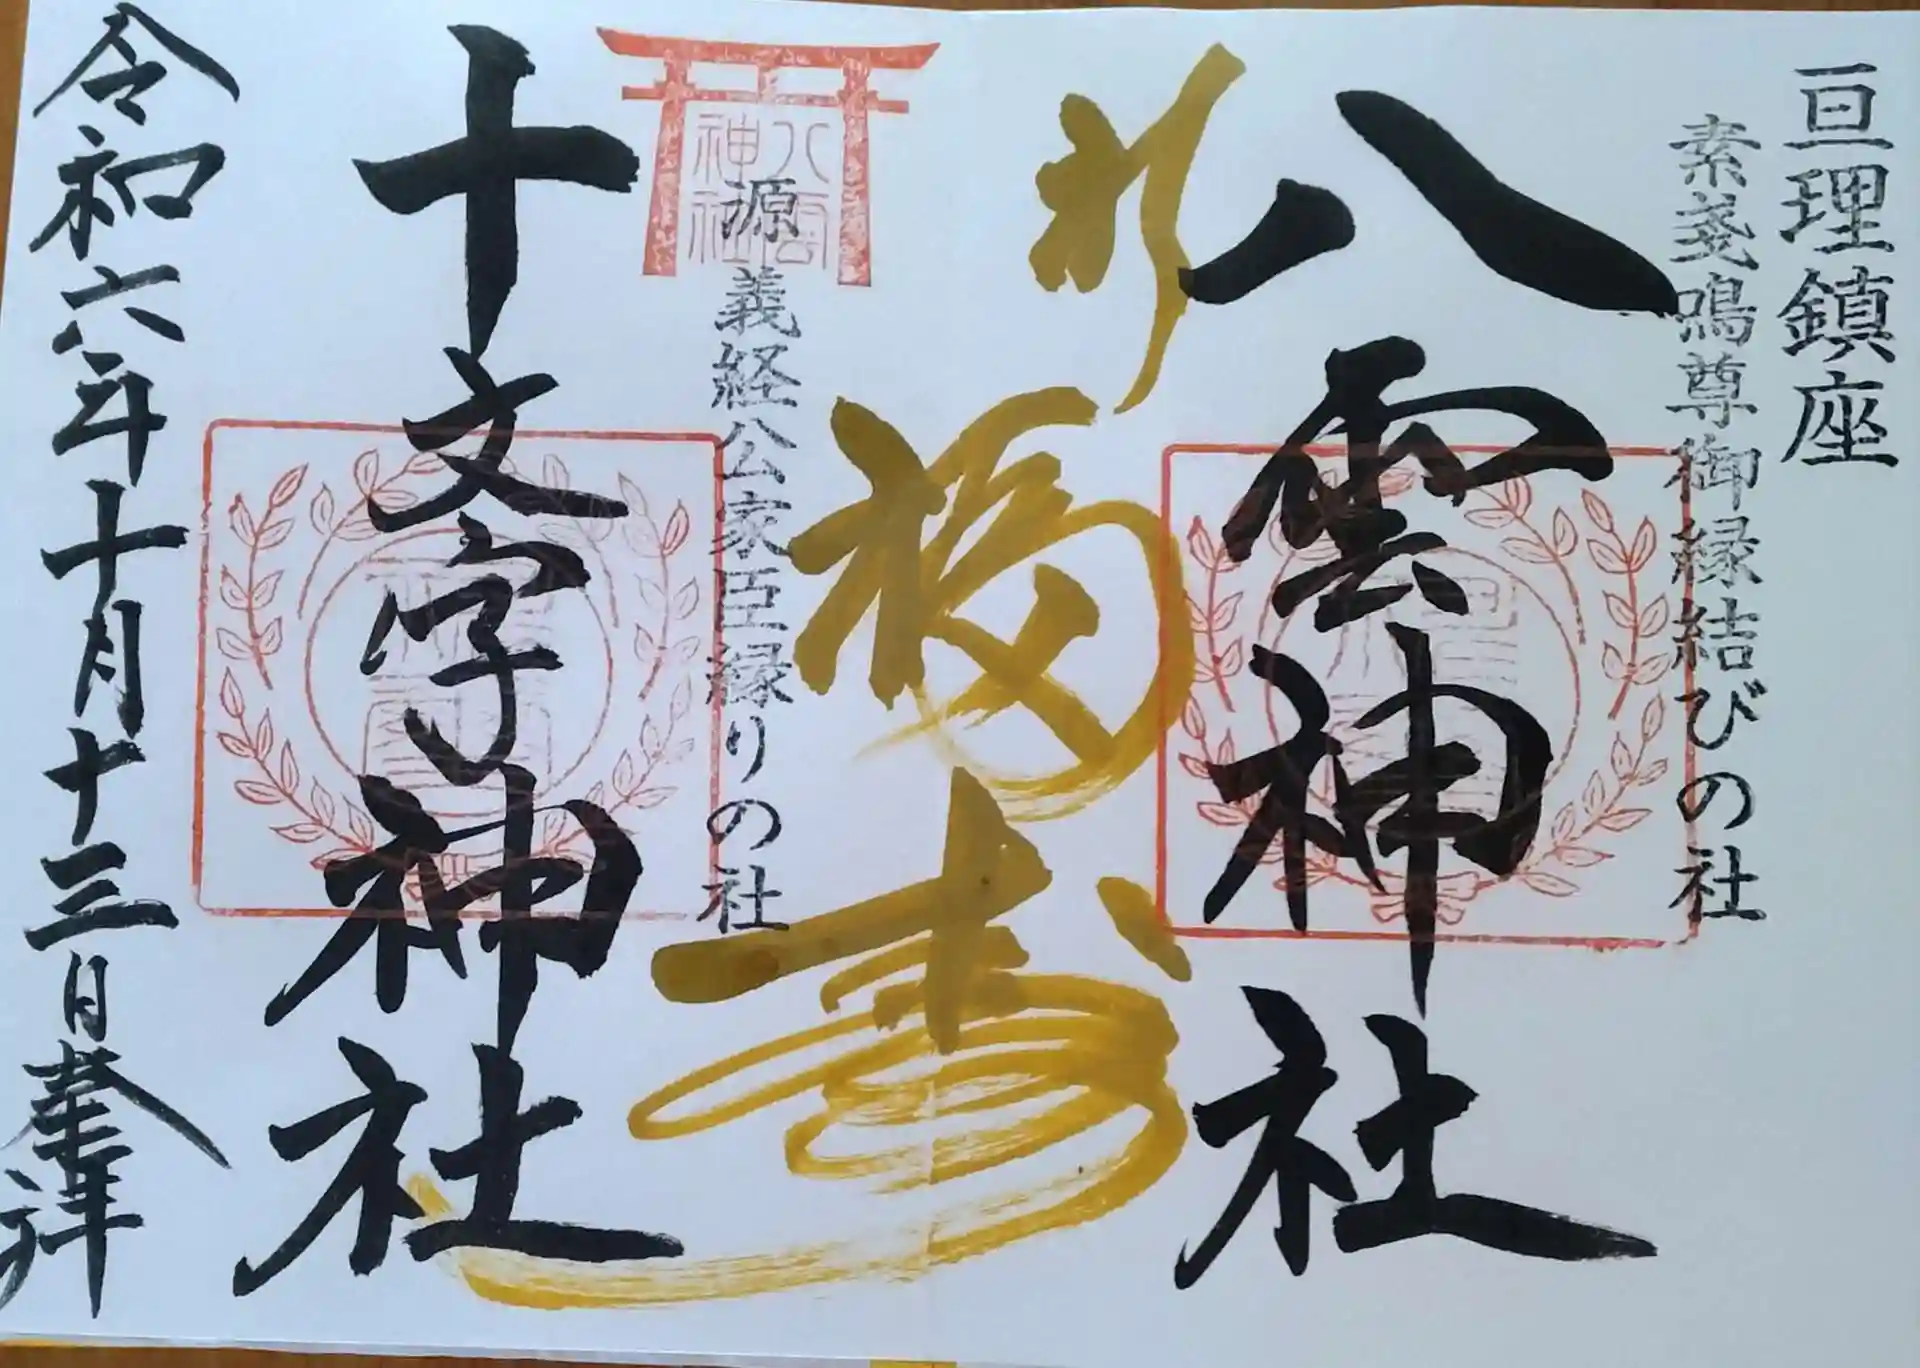 亘理鎮座
素戔鳴尊御縁結びの社
八雲神社
福寿
八雲
神社
源義経公家臣縁りの社
十文字神社
令和六年十月十三日奉拝